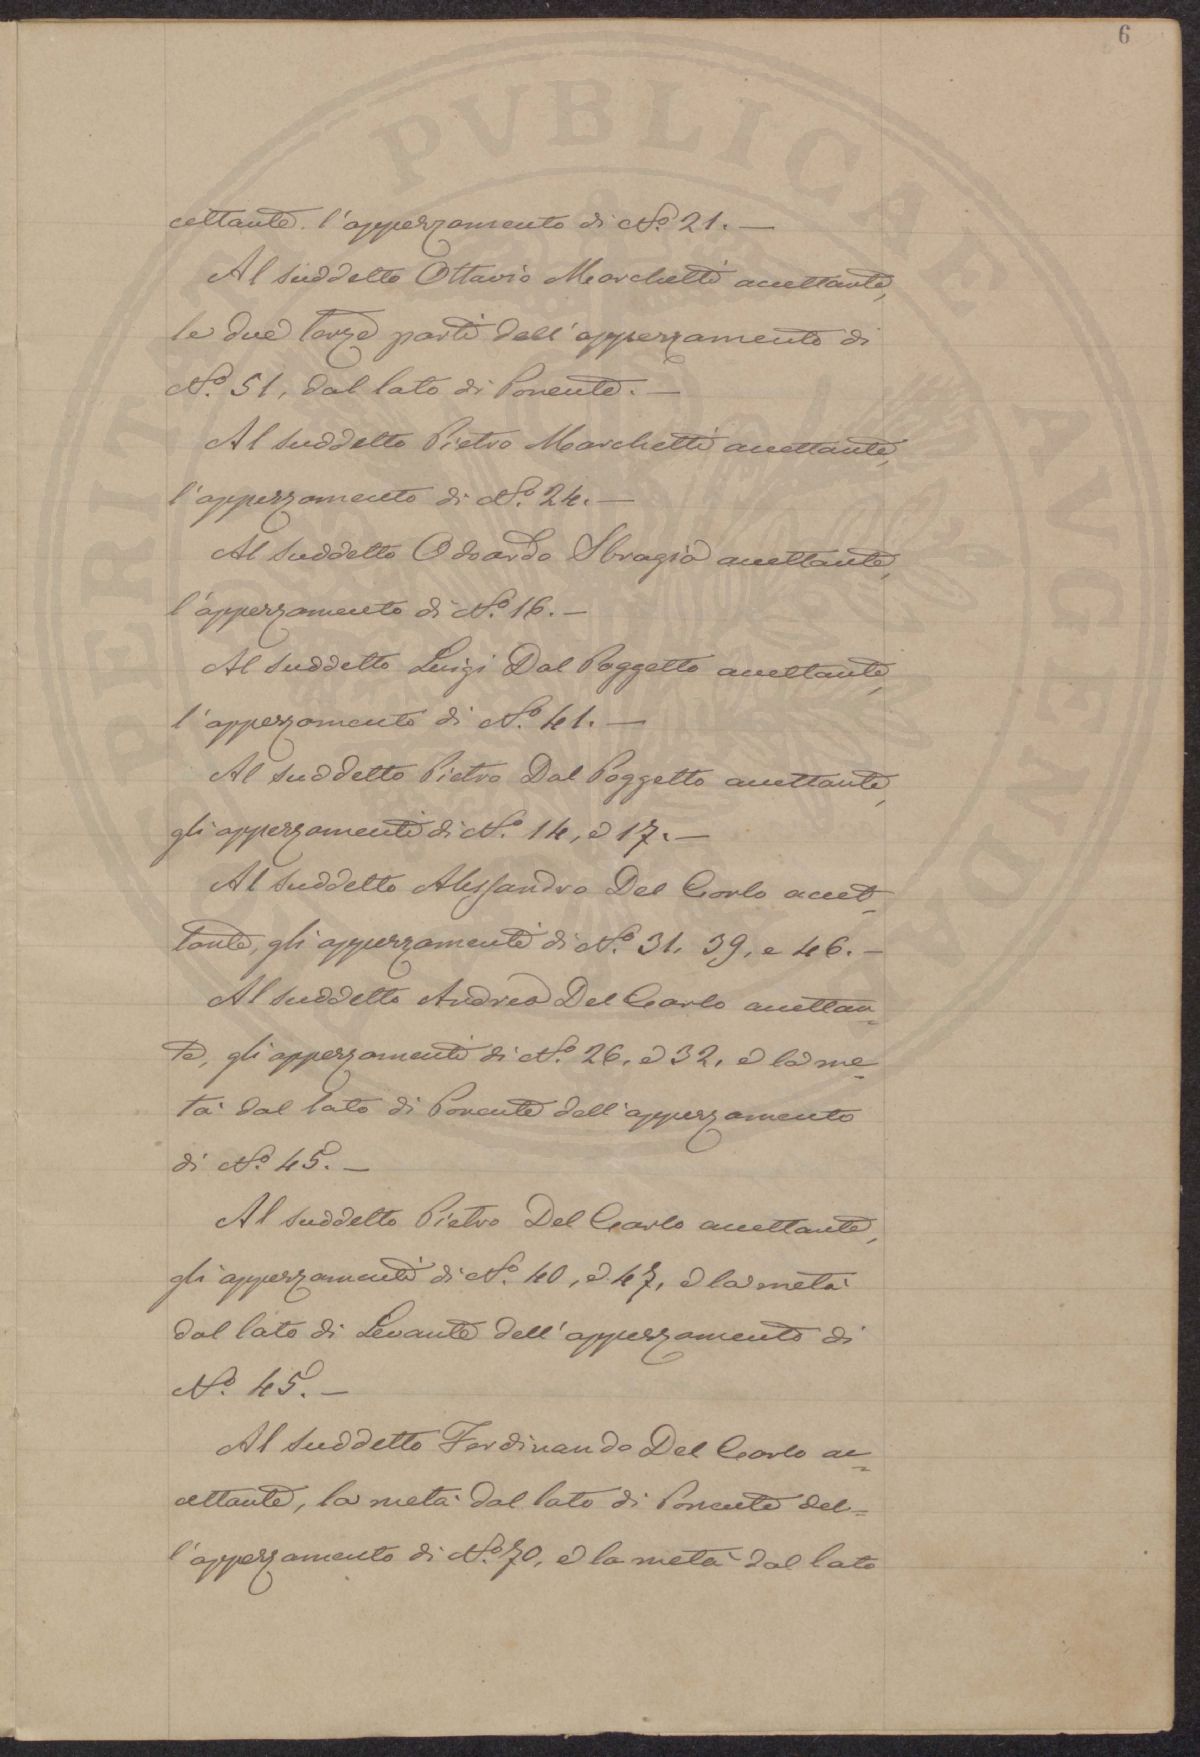 6
PERITIAE PVBLICAE AVCTE
cettante l'appezzamento di No. 21. —
Al suddetto Ottavio Marchetti accettante,
le due terze parti dell'appezzamento di
No. 51, dal lato di Ponente. —
Al suddetto Pietro Marchetti accettante,
l'appezzamento di No. 24. —
Al suddetto Odoardo Sbragia accettante,
l'appezzamento di No. 16. —
Al suddetto Luigi Dal Poggetto accettante,
l'appezzamento di No. 41. —
Al suddetto Pietro Dal Poggetto accettante,
gli appezzamenti di No. 14, e 17. —
Al suddetto Alessandro Del Carlo accet=
tante, gli appezzamenti di No. 31, 39, e 46. —
Al suddetto Andrea Del Carlo accettan=
te, gli appezzamenti di No. 26, e 32, e la me=
tà dal lato di Ponente dell'appezzamento
di No. 45. —
Al suddetto Pietro Del Carlo accettante,
gli appezzamenti di No. 40, e 47, e la metà
dal lato di Levante dell'appezzamento di
No. 45. —
Al suddetto Ferdinando Del Carlo ac=
cettante, la metà dal lato di Ponente del=
l'appezzamento di No. 70, e la metà dal lato